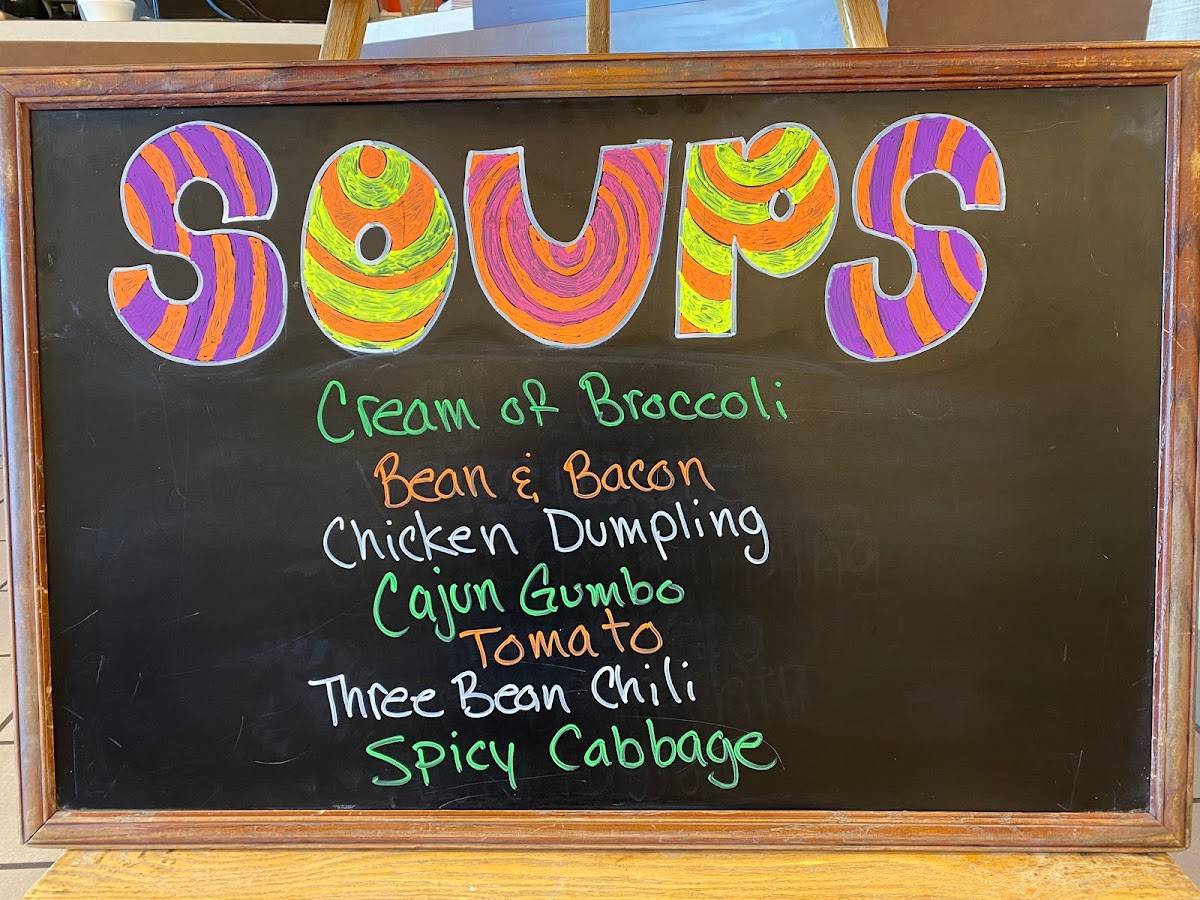 SOUPS
Cream of Broccoli
Bean & Bacon
Chicken Dumpling
Cajun Gumbo
Tomato
Three Bean Chili
Spicy Cabbage